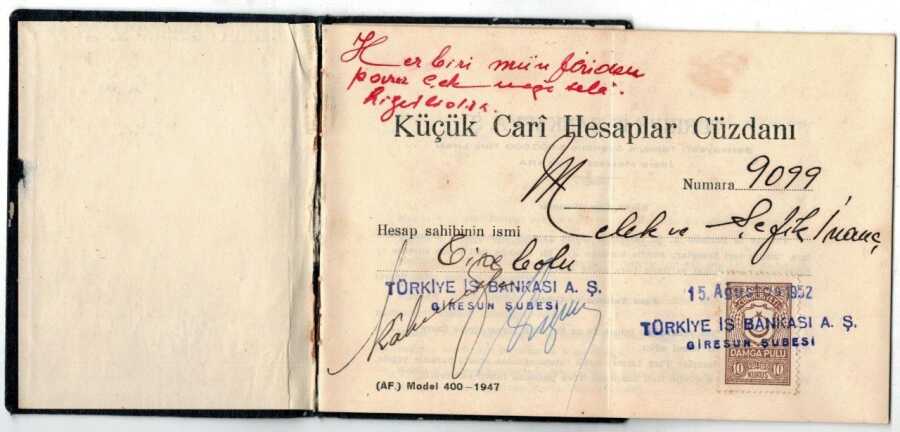 Her biri münferiden
para çek
Küçük Carî Hesaplar Cüzdanı
M
Numara 9099
Hesap sahibinin ismi Melek ve Şefik İnanç
Tirebolu
TÜRKİYE İŞ BANKASI A. Ş.
GİRESUN ŞUBESİ
15. Ağustos 1952
TÜRKİYE İŞ BANKASI A. Ş.
GİRESUN ŞUBESİ
DAMGA PULU
10 KURUŞ 10
(AF.) Model 400-1947